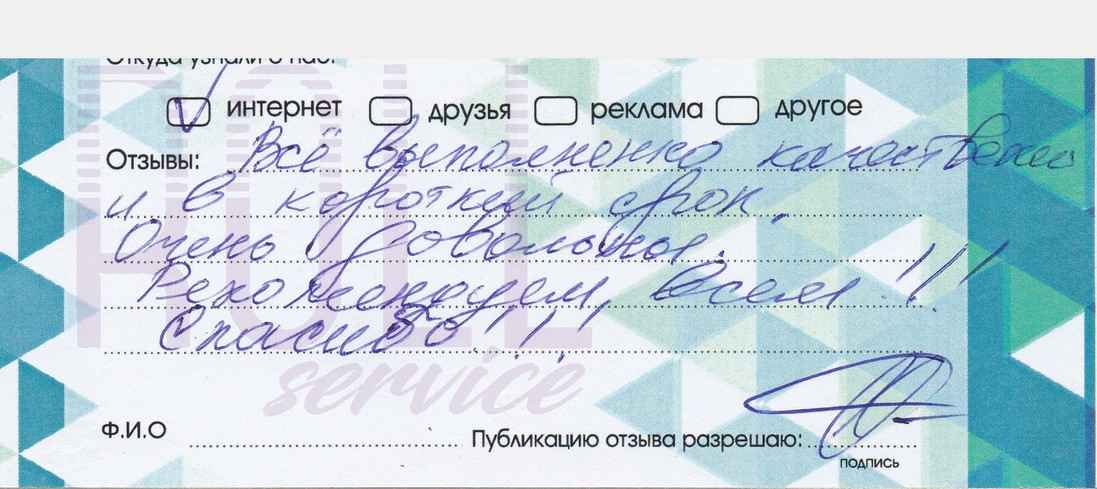 Откуда узнали о нас:
интернет друзья реклама другое
Отзывы: Всё выполненно качественно
и в короткий срок.
Очень довольны.
Рекомендуем всем!!!
Спасибо!!!
service
Ф.И.О Публикацию отзыва разрешаю:
подпись